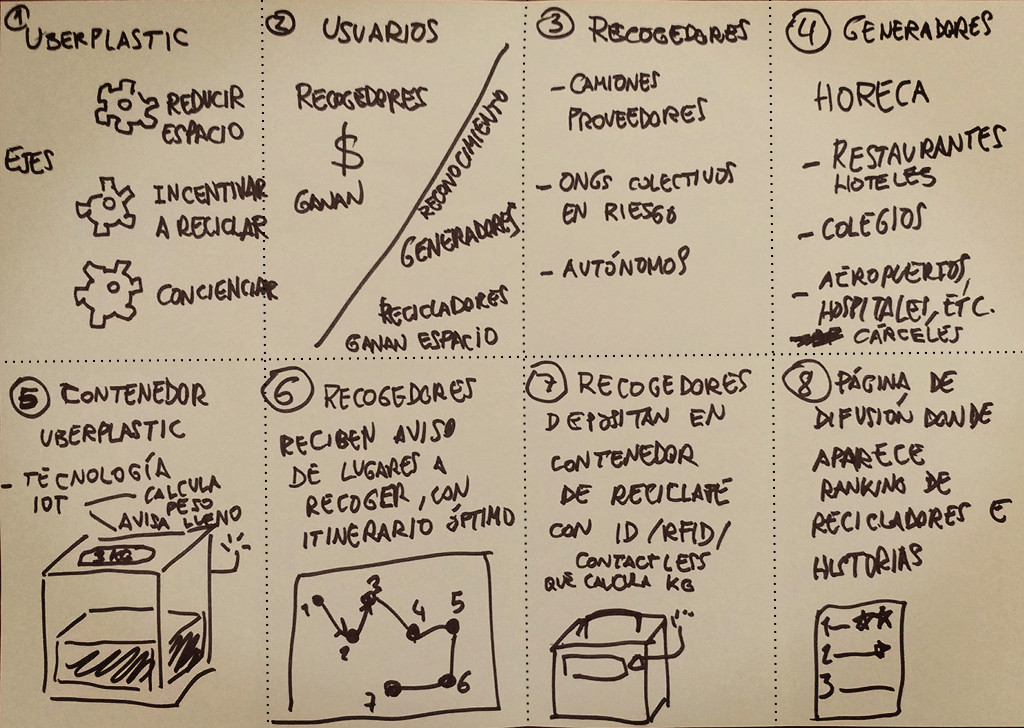 1 UBERPLASTIC
EJES
REDUCIR
ESPACIO
INCENTIVAR
A RECICLAR
CONCIENCIAR
2 USUARIOS
RECOGEDORES
$
GANAN
RECONOCIMIENTO
GENERADORES
RECICLADORES
GANAN ESPACIO
3 RECOGEDORES
- CAMIONES
PROVEEDORES
- ONGS COLECTIVOS
EN RIESGO
- AUTÓNOMOS
4 GENERADORES
HORECA
- RESTAURANTES
HOTELES
- COLEGIOS
- AEROPUERTOS,
HOSPITALES, ETC.
CÁRCELES
5 CONTENEDOR
UBERPLASTIC
- TECNOLOGÍA
IOT
CALCULA
PESO
AVISA LLENO
3 KG
6 RECOGEDORES
RECIBEN AVISO
DE LUGARES A
RECOGER, CON
ITINERARIO ÓPTIMO
1 2 3 4 5 6 7
7 RECOGEDORES
DEPOSITAN EN
CONTENEDOR
DE RECICLAJE
CON ID/RFID/
CONTACTLESS
QUE CALCULA KG
8 PÁGINA DE
DIFUSIÓN DONDE
APARECE
RANKING DE
RECICLADORES E
HISTORIAS
1
2
3